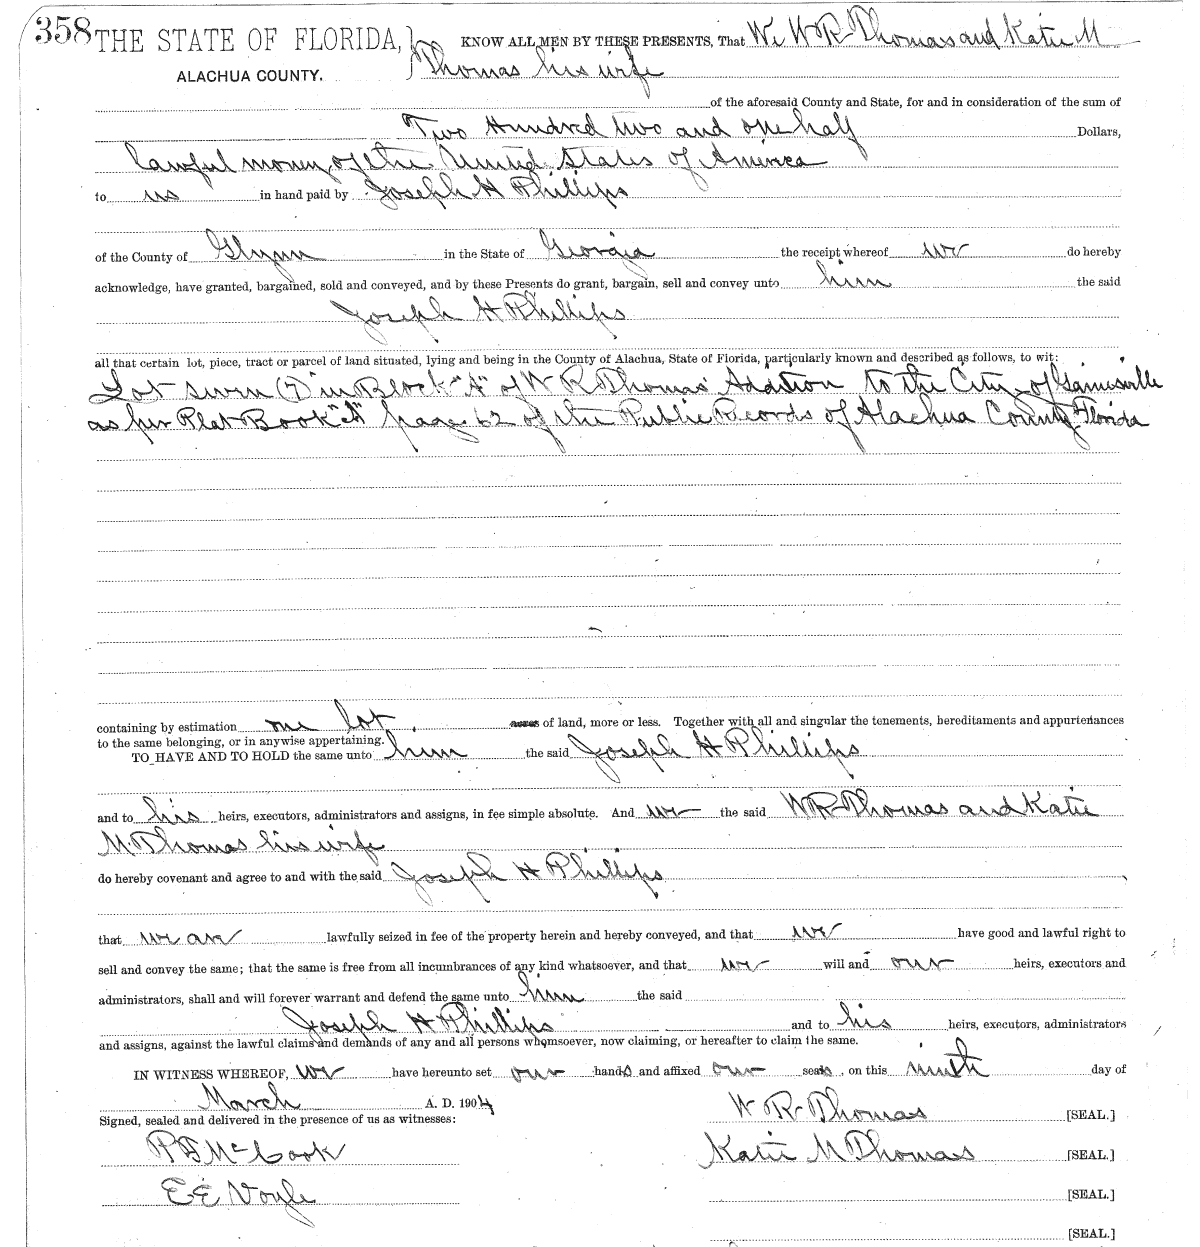 358 THE STATE OF FLORIDA, } KNOW ALL MEN BY THESE PRESENTS, That We W R Thomas and Katie M
ALACHUA COUNTY. Thomas his wife
of the aforesaid County and State, for and in consideration of the sum of
Two Hundred two and one half Dollars,
lawful money of the United States of America
to us in hand paid by Joseph H Phillips
of the County of Glynn in the State of Georgia the receipt whereof we do hereby
acknowledge, have granted, bargained, sold and conveyed, and by these Presents do grant, bargain, sell and convey unto him the said
Joseph H Phillips
all that certain lot, piece, tract or parcel of land situated, lying and being in the County of Alachua, State of Florida, particularly known and described as follows, to wit:
Lot seven (7) in Block "A" of W R Thomas' Addition to the City of Gainesville
as per Plat Book "A" page 62 of the Public Records of Alachua County Florida
containing by estimation one lot. acres of land, more or less. Together with all and singular the tenements, hereditaments and appurtenances
to the same belonging, or in anywise appertaining.
TO HAVE AND TO HOLD the same unto him the said Joseph H Phillips
and to his heirs, executors, administrators and assigns, in fee simple absolute. And we the said W R Thomas and Katie
M. Thomas his wife
do hereby covenant and agree to and with the said Joseph H Phillips
that we are lawfully seized in fee of the property herein and hereby conveyed, and that we have good and lawful right to
sell and convey the same; that the same is free from all incumbrances of any kind whatsoever, and that we will and our heirs, executors and
administrators, shall and will forever warrant and defend the same unto him the said
Joseph H Phillips and to his heirs, executors, administrators
and assigns, against the lawful claims and demands of any and all persons whomsoever, now claiming, or hereafter to claim the same.
IN WITNESS WHEREOF, we have hereunto set our hands and affixed our seals, on this ninth day of
March A. D. 1904
Signed, sealed and delivered in the presence of us as witnesses: W R Thomas [SEAL.]
McCook Katie M Thomas [SEAL.]
E E Voyle [SEAL.]
[SEAL.]